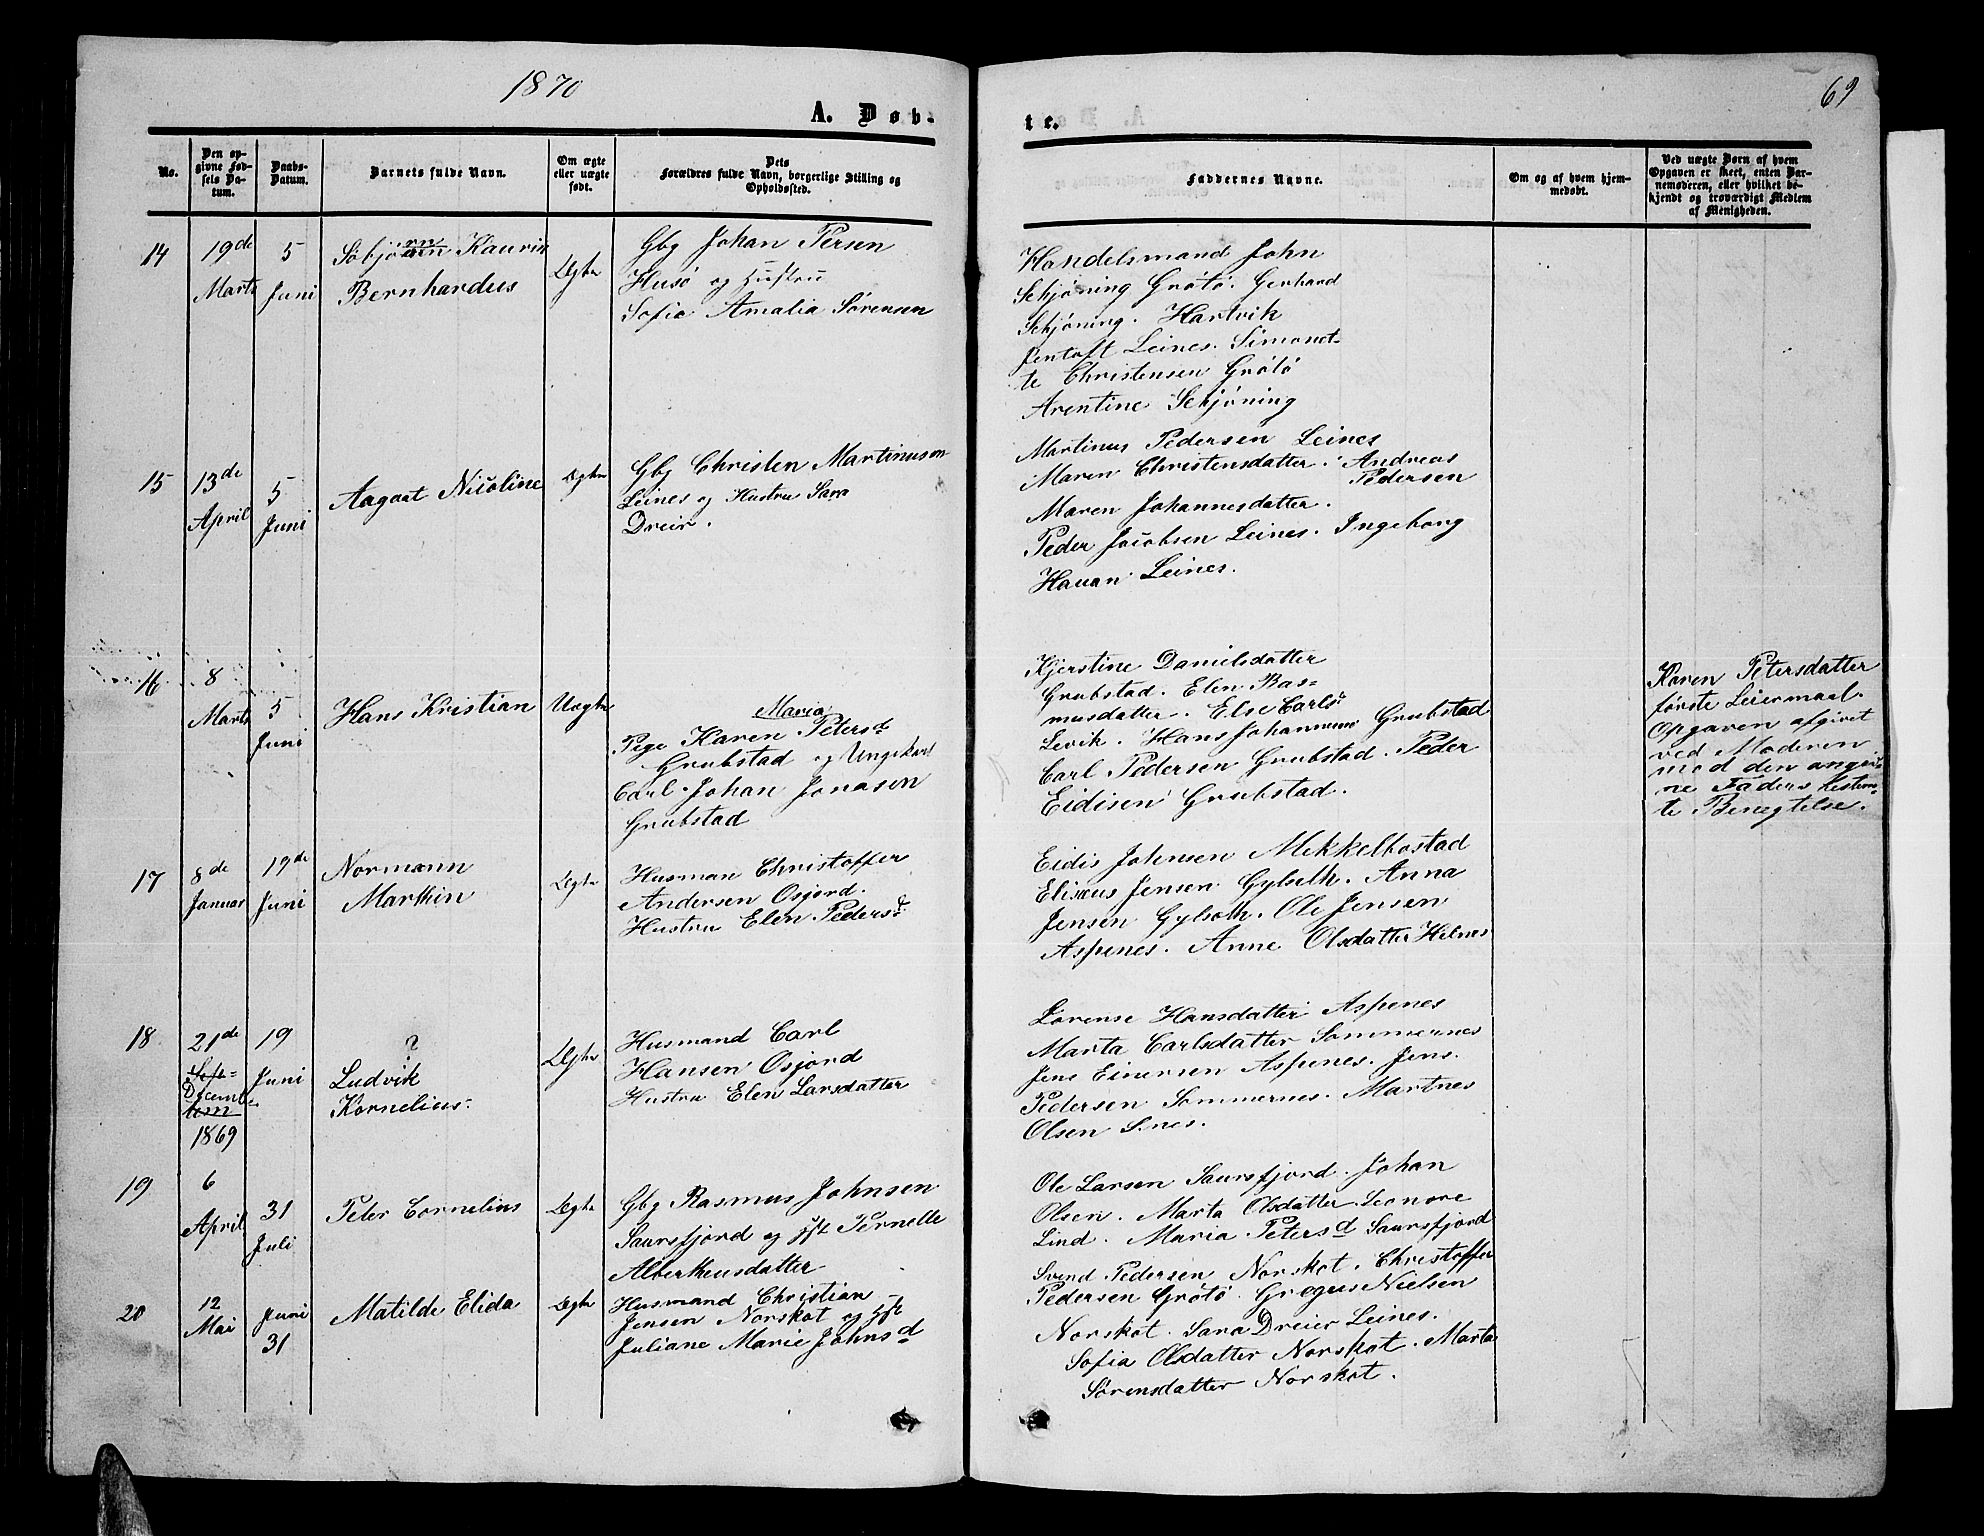 1870
69
A. Døb-
te.
No.
Den op-
givne Fød-
sels Da-
tum.
Daabs-
Datum.
Barnets fulde Navn.
Om ægte
eller uægte
født.
Dets
Forældres fulde Navn, borgerlige Stilling og
Opholdssted.
Faddernes Navne.
Om og af hvem hjem-
medøbt.
Ved uægte Børn af hvem
Opgaven er skeet, enten Bar-
nemoderen, eller hvilket be-
kjendt og troværdigt Medlem
af Menigheden.
14
19de
Marts
5
Juni
Kaurin
Bernhardus
Ægte
Gbg Johan Persen
Husø og Hustru
Sofie Amalia Sørensen
Handelsmand John
Schjøning Grøtø. Gerhard
Schjøning. Hartvik
Jentoft Leines. Simonet-
te Christensen Grøtø
Arentine Schjøning
15
13de
April
5
Juni
Aagaat Nicoline
Ægte
Gbg Christen Martinusen
Leines og Hustru Sara
Dreir.
Martinus Pedersen Leines
Maren Christensdatter. Andreas
Pedersen
Maren Johannesdatter.
Peder Jacobsen Leines. Ingeborg
Leines.
16
8
Marts
5
Juni
Hans Kristian
Uægte
Maria
Pige Karen Petersd
Grubstad og Ungekarl
Carl Johan Jonasen
Grubstad
Kjerstine Danielsdatter
Grubstad. Elen Ras-
musdatter. Else Carlsd
Levik. Hans Johannesen Grubstad
Carl Pedersen Grubstad. Peder
Eidisen Grubstad.
Karen Petersdatter
første Leiermaal.
Opgaven afgivet
ved Moderen
med den angiv-
ne Faders bestem-
te Benegtelse.
17
8de
Januar
19de
Juni
Normann
Marthin
Ægte
Husman Christoffer
Andersen Osjord.
Hustru Elen Pedersd
Eidis Johnsen Mikkelbostad
Elisæus Jensen Gylseth. Anna
Jensen Gylseth. Ole Jensen
Aspenes. Anne Olsdatter Hilnes
18
21de
Sept-
Decemb-
1869
19
Juni
?
Ludvik
Kornelius.
Ægte
Husmand Carl
Hansen Osjord
Hustru Elen Larsdatter
Lorense Hansdatter Aspenes
Marta Carlsdatter Sommernes
Jens Einersen Aspenes. Jens
Pedersen Sommernes. Martnes
Olsen
19
6
April
31
Juli
Peter Cornelius
Ægte
Gbg Rasmus Johnsen
Saursfjord og Hst Pernelle
Albertheusdatter
Ole Larsen Saursfjord. Johan
Olsen. Marta Olsdatter. Leonore
Lind. Maria Petersd Saursfjord
20
12
Mai
Juni
31
Matilde Elida
Ægte
Husmand Christian
Jensen Norskot og Hst
Juliane Marie Johnsd
Svend Pedersen Norskot. Christoffer
Pedersen Grøtø. Gregus Nielsen
Norskot. Sara Dreier Leines.
Sofia Olsdatter Norskot. Marta
Sørensdatter Norskot.